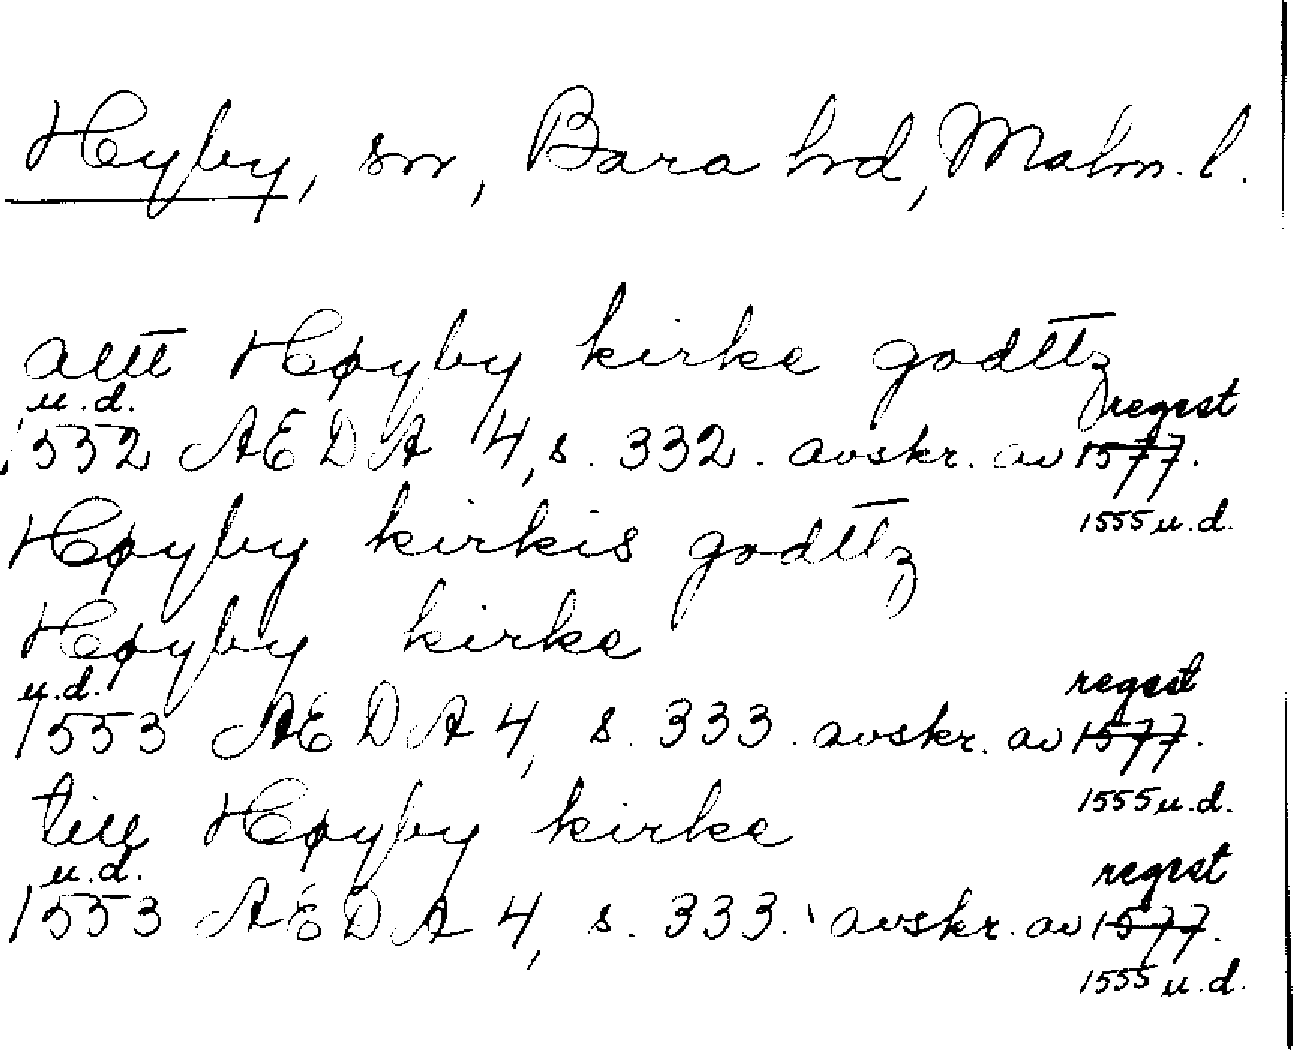 Hyby, sn, Bara hd, Malm. l.
altt Høyby kirke godttz
u.d. regest
1532 AEDA 4, s. 332. avskr. av 1577.
1555 u.d.
Høyby kirkis godttz
Høyby kirke
u.d. regest
1553 AEDA 4, s. 333. avskr. av 1577.
1555 u.d.
till Høyby kirke
u.d. regest
1553 AEDA 4, s. 333. avskr. av 1577.
1555 u.d.